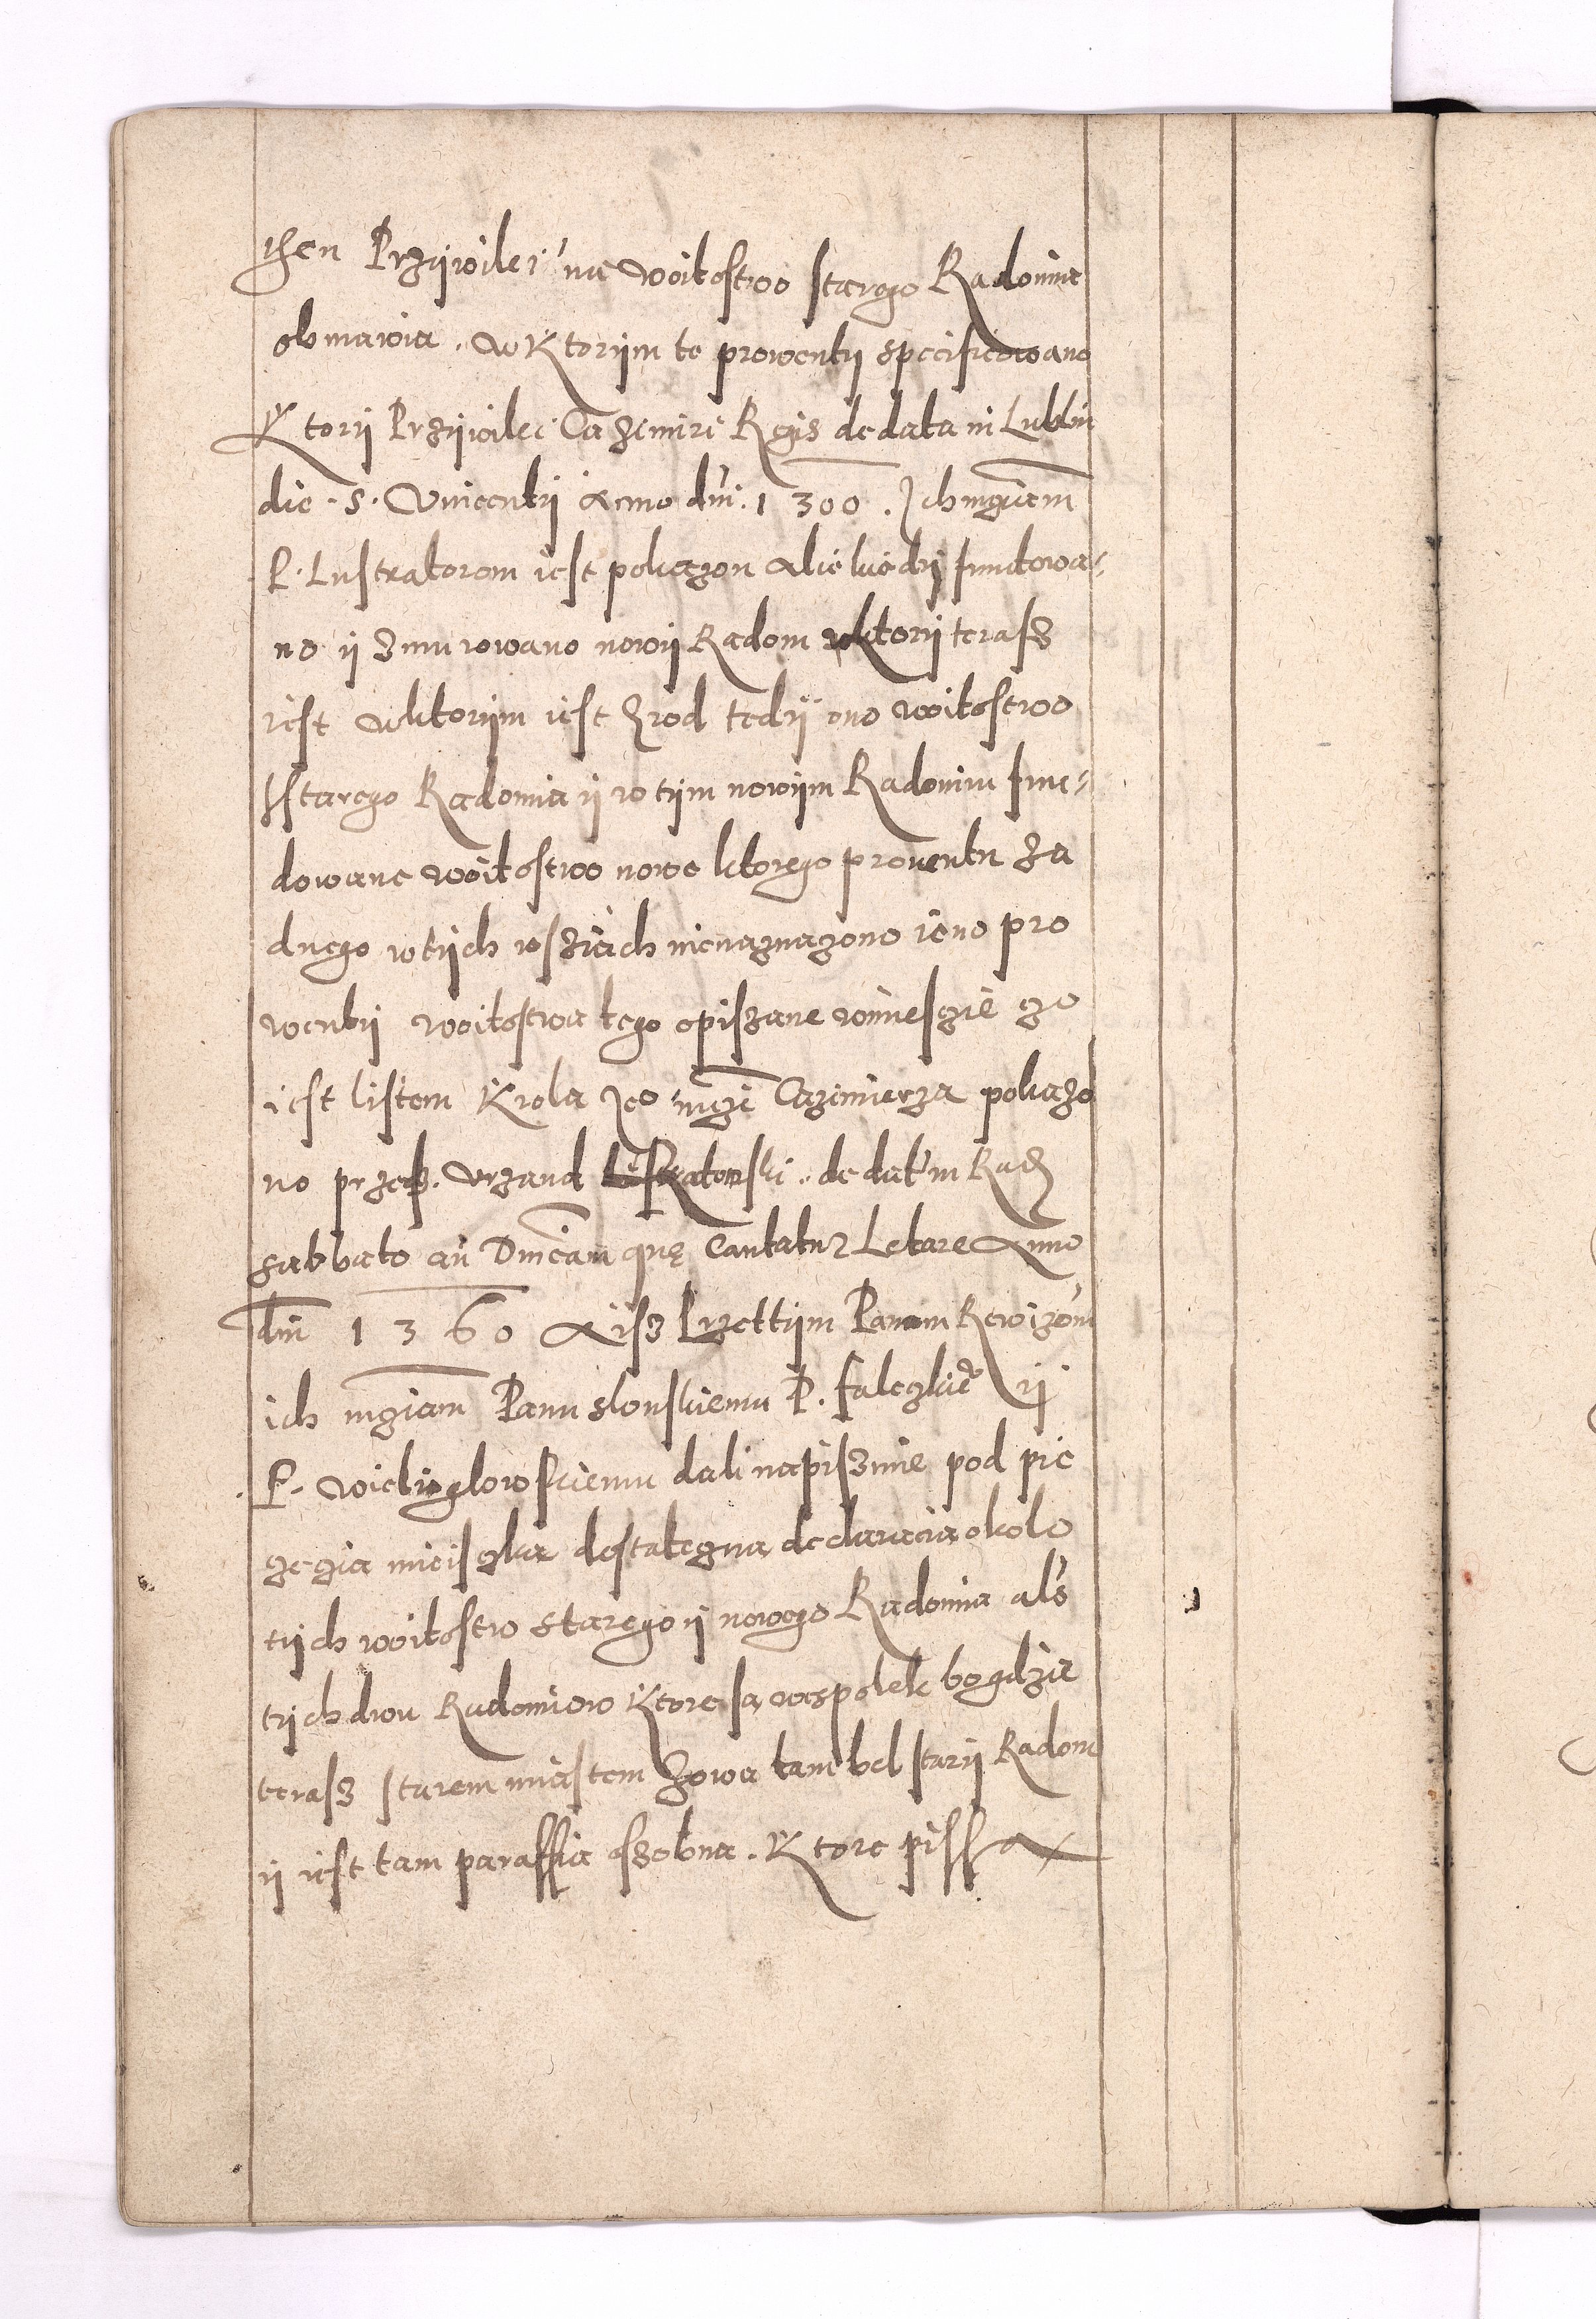 then Przÿwilei na woitostwo starego Radomia
obmawia. w Ktorÿm te prowentÿ specificowano
Ktorÿ Przÿwilei Cazimiri Regis de data in Lublin
die. S. Vincentÿ Anno dni. 1300. Ich mgciom
P. Lustratorom iest pokazon Alie kiedÿ fundowa-
no ÿ zmurowano nowÿ Radom wktorÿ terasz
iest wktorÿm iest Zrod tedÿ ono woitostwo
starego Radomia ÿ w tÿm nowÿm Radomiu fun-
dowane woitostwo nowe ktorego prouentu za
dnego w tÿch wsziach nienaznazono ieno pro
wentÿ woitostwa tego opiszane wnuieszie zo
iest listem Krola Ieo mgci Cazimierza pokazo
no przesz. vrzand de dat in Rad
sabbato an Dnicam quę Cantatur Letare Anno
dni 1360 Aisz Przettÿm Panom Rewizom
ich mgciam Panu slonskiemu P. falegkie ÿ
P. wielioglowskiemu dali napiszmie pod pie
zezia mieiszka dostategna declaracia okolo
tÿch woitostw starego ÿ nowego Radomia als
tÿch dwu Radomiow Ktore sa wespolek bo gdzie
terasz starem miastem zowa tam bel starÿ Radom
ÿ iest tam paraffia oszobna. Ktore pissa